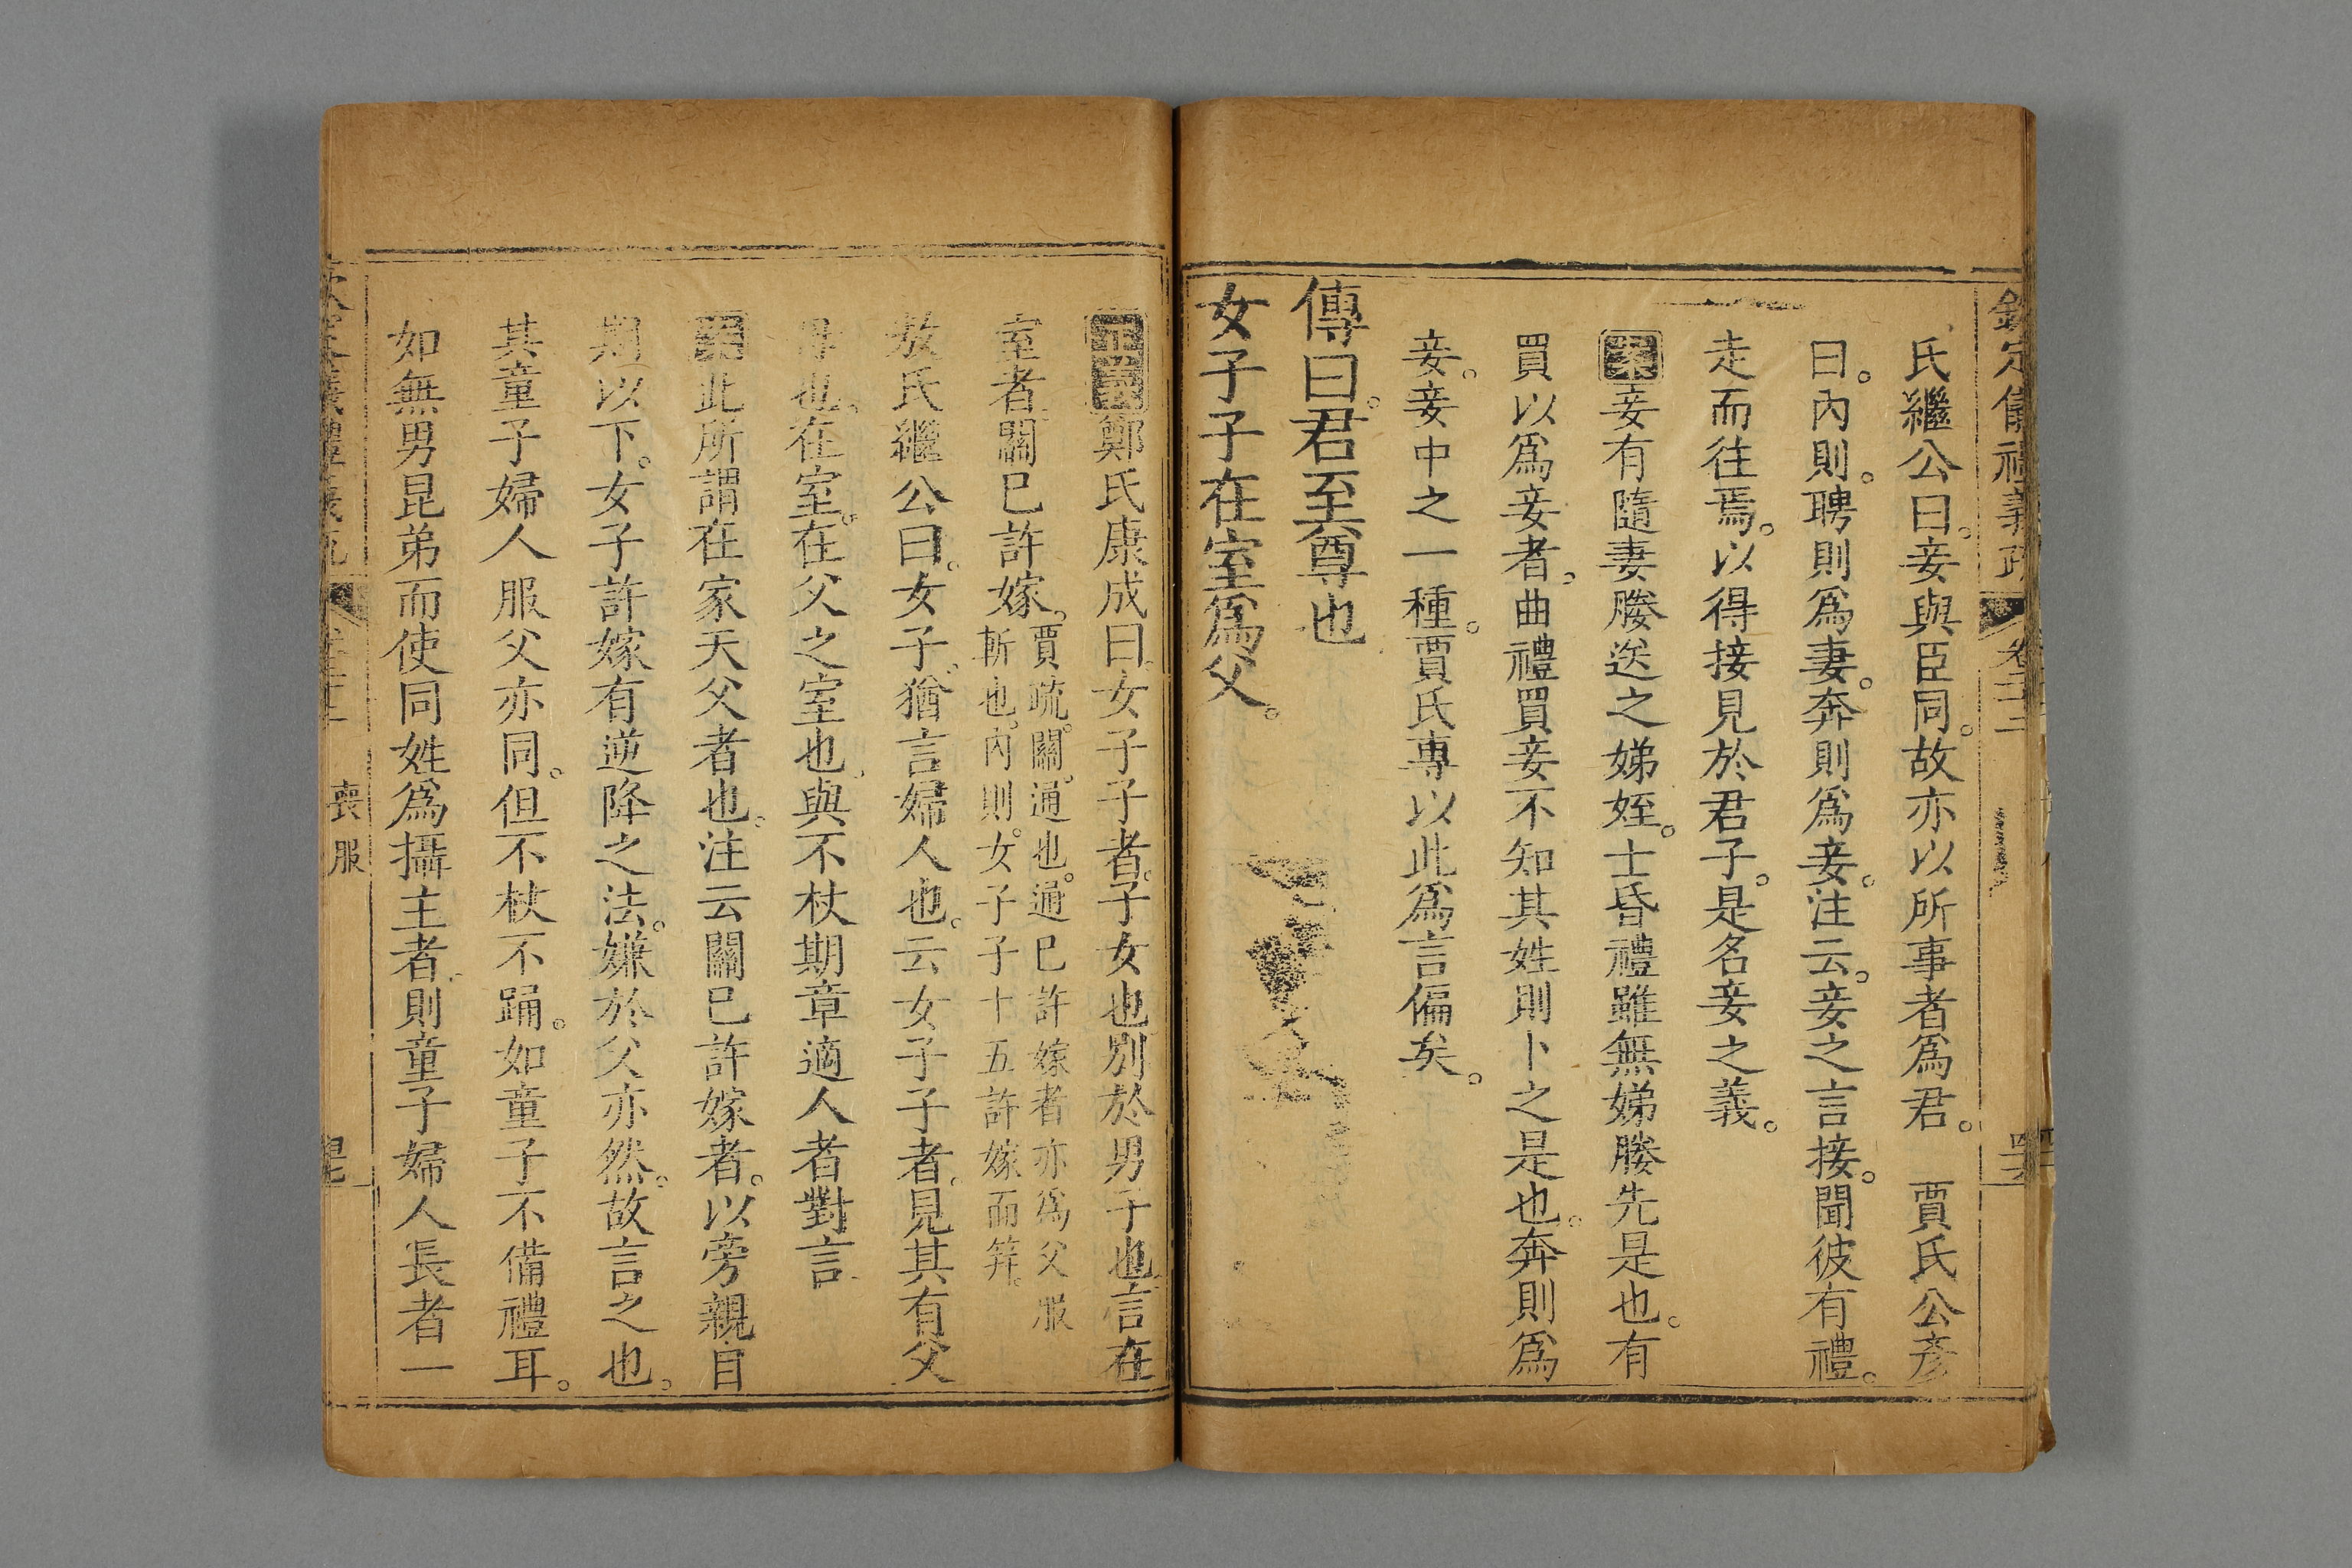 欽定儀禮義疏 卷二十二
氏繼公曰。妾與臣同。故亦以所事者爲君。 賈氏公彥
曰。內則。聘則爲妻。奔則爲妾。注云。妾之言接。聞彼有禮。
走而往焉。以得接見於君子。是名妾之義。
案妾有隨妻媵送之娣姪。士昏禮雖無娣媵先是也。有
買以爲妾者。曲禮買妾不知其姓則卜之是也。奔則爲
妾。妾中之一種。賈氏專以此爲言偏矣。
傳曰。君至尊也
女子子在室爲父。
正義鄭氏康成曰。女子子者。子女也。別於男子也。言在
室者。關已許嫁。賈疏。關。通也。通已許嫁者亦爲父服
斬也。內則。女子子十五許嫁而笄。
敖氏繼公曰。女子。猶言婦人也。云女子子者。見其有父
母也。在室。在父之室也。與不杖期章適人者對言
案此所謂在家天父者也。注云關已許嫁者。以旁親自
期以下。女子許嫁有逆降之法。嫌於父亦然。故言之也。
其童子婦人服父亦同。但不杖不踊。如童子不備禮耳。
如無男昆弟而使同姓爲攝主者。則童子婦人長者一
喪服